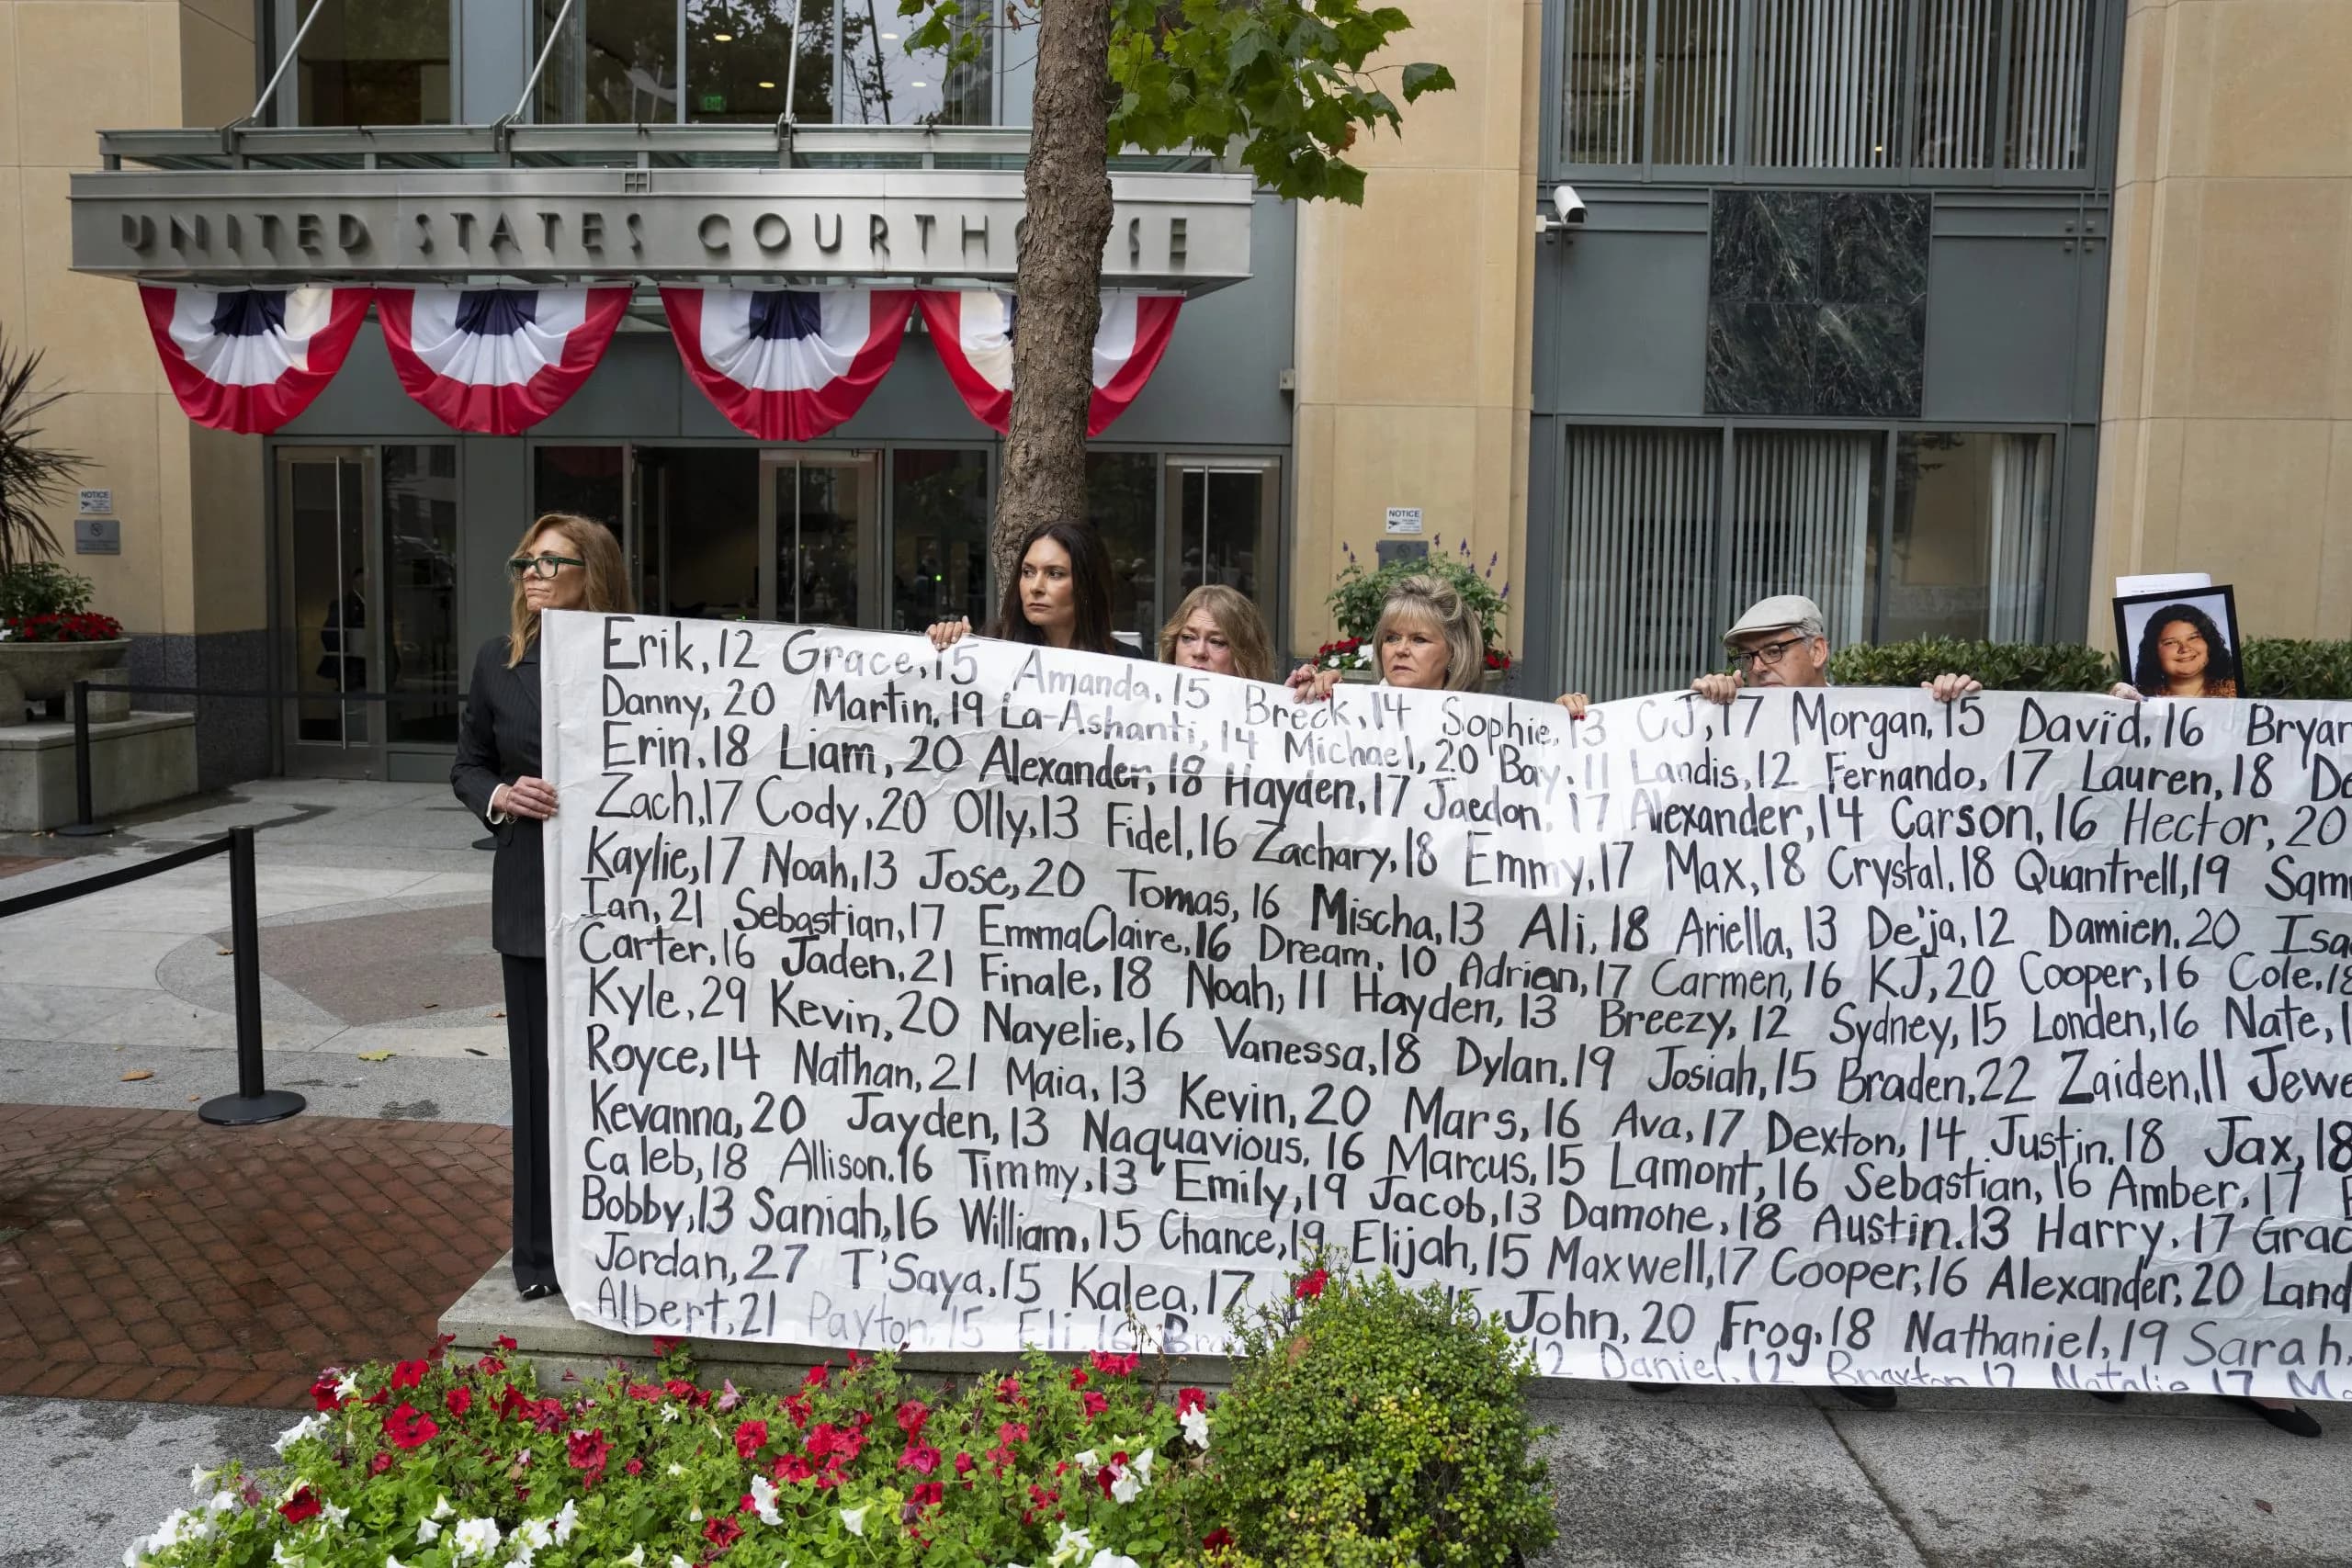 UNITED STATES COURTHOUSE
NOTICE
NOTICE
Erik, 12 Grace, 15 Amanda, 15 Breck, 14 Sophie, 13 CJ, 17 Morgan, 15 David, 16 Bryan
Danny, 20 Martin, 19 La-Ashanti, 14 Michael, 20 Bay, 11 Landis, 12 Fernando, 17 Lauren, 18
Erin, 18 Liam, 20 Alexander, 18 Hayden, 17 Jaedon, 17 Alexander, 14 Carson, 16 Hector, 20
Zach, 17 Cody, 20 Olly, 13 Fidel, 16 Zachary, 18 Emmy, 17 Max, 18 Crystal, 18 Quantrell, 19
Kaylie, 17 Noah, 13 Jose, 20 Tomas, 16 Mischa, 13 Ali, 18 Ariella, 13 De'ja, 12 Damien, 20
Ian, 21 Sebastian, 17 EmmaClaire, 16 Dream, 10 Adrian, 17 Carmen, 16 KJ, 20 Cooper, 16 Cole, 18
Carter, 16 Jaden, 21 Finale, 18 Noah, 11 Hayden, 13 Breezy, 12 Sydney, 15 Londen, 16 Nate,
Kyle, 29 Kevin, 20 Nayelie, 16 Vanessa, 18 Dylan, 19 Josiah, 15 Braden, 22 Zaiden, 11
Royce, 14 Nathan, 21 Maia, 13 Kevin, 20 Mars, 16 Ava, 17 Dexton, 14 Justin, 18 Jax, 18
Kevanna, 20 Jayden, 13 Naquavious, 16 Marcus, 15 Lamont, 16 Sebastian, 16 Amber, 17
Caleb, 18 Allison, 16 Timmy, 13 Emily, 19 Jacob, 13 Damone, 18 Austin, 13 Harry, 17
Bobby, 13 Saniah, 16 William, 15 Chance, 19 Elijah, 15 Maxwell, 17 Cooper, 16 Alexander, 20
Jordan, 27 T'Saya, 15 Kalea, 17 John, 20 Frog, 18 Nathaniel, 19 Sarah,
Albert, 21 Payton, 15 Eli, 16 Daniel, 12 Braxton, 17 Natalie, 17